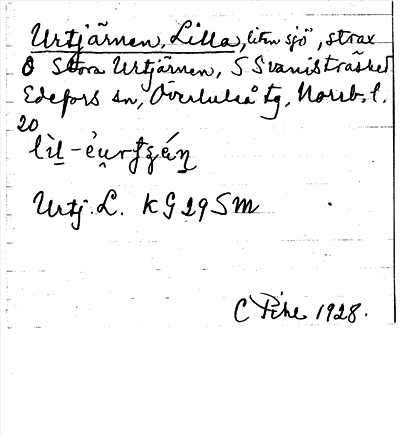 Urtjärnen, Lilla, liten sjö, strax
Ö Stora Urtjärnen, S Svanisträsket
Edefors sn, Överluleå tg, Norrb. l.
20
Urtj. L. KG 29 SM
C Pihl 1928.